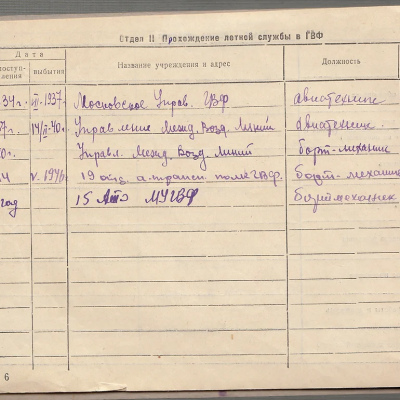 Отдел II Прохождение летной службы в ГВФ
Дата
поступ-
ления
выбытия
Название учреждения и адрес
Должность
34г. VII-1937г. Московское Управ. ГВФ авиотехник
7г. 14/II-40г. Управление Межд. Возд. Линий авиотехник
0г. Управл. Межд. Возд. Линий борт-механик
4 V. 1946г. 19 отд. а.трансп. полк ГВФ. борт-механик
год 15 Ато МУГВФ бортмеханик
6